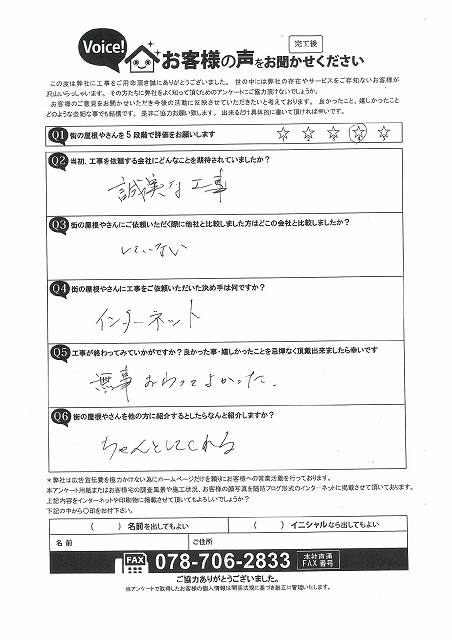 Voice!
お客様の声をお聞かせください
完工後
この度は弊社に工事をご用命頂き誠にありがとうございました。 世の中には弊社の存在やサービスをご存知ないお客様が
沢山いらっしゃいます。その方たちに弊社をよく知って頂くためのアンケートにご協力頂けないでしょうか。
お客様のご意見をお聞かせいただき今後の活動に反映させていただきたいと考えております。 良かったこと、嬉しかったこと
どのような些細な事でも結構です。 是非ご協力お願い致します。 出来るだけ具体的に書いて頂ければ幸いです。
Q1 街の屋根やさんを5段階で評価をお願いします
☆1 ☆2 ☆3 ☆4 ☆5
Q2 当初、工事を依頼する会社にどんなことを期待されていましたか?
誠実な工事
Q3 街の屋根やさんにご依頼いただく際に他社と比較しました方はどこの会社と比較しましたか?
していない
Q4 街の屋根やさんに工事をご依頼いただいた決め手は何ですか?
インターネット
Q5 工事が終わってみていかがですか?良かった事・嬉しかったことを忌憚なく頂戴出来ましたら幸いです
無事おわってよかった。
Q6 街の屋根やさんを他の方に紹介するとしたらなんと紹介しますか?
ちゃんとしてくれる
*弊社は広告宣伝費を極力かけない為にホームページだけを頼りにお客様への営業活動を行っております。
本アンケート用紙またはお客様宅の調査風景や施工状況、お客様の顔写真を随時ブログ形式のインターネットに掲載させて頂いております。
上記内容をインターネットや印刷物に掲載させて頂いてもよろしいでしょうか?
下記の中から〇印をお付下さい。
( ) 名前を出してもよい ( ) イニシャルなら出してもよい
名前 ご住所
FAX 078-706-2833 本社直通 FAX番号
ご協力ありがとうございました。
当アンケートで取得したお客様の個人情報は関係法規に基づき厳正に管理いたします。